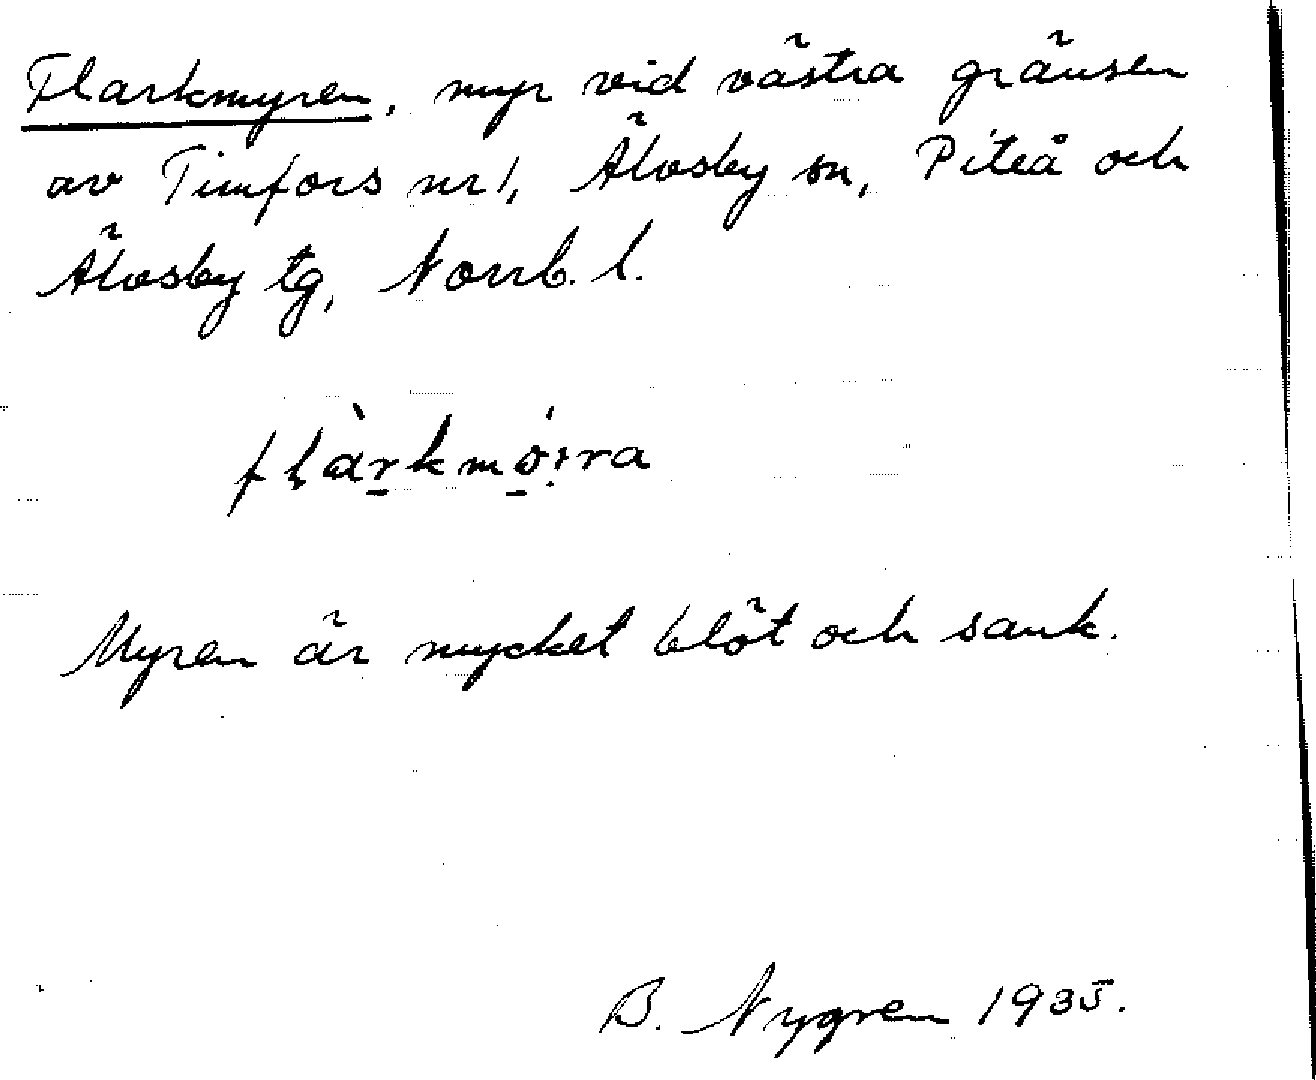 Flarkmyren, myr vid västra gränsen
av Timfors nr 1, Älvsby sn, Piteå och
Älvsby tg, Norrb. l.
flàrkmó̱i̯ra
Myren är mycket blöt och sank.
B. Nygren 1935.